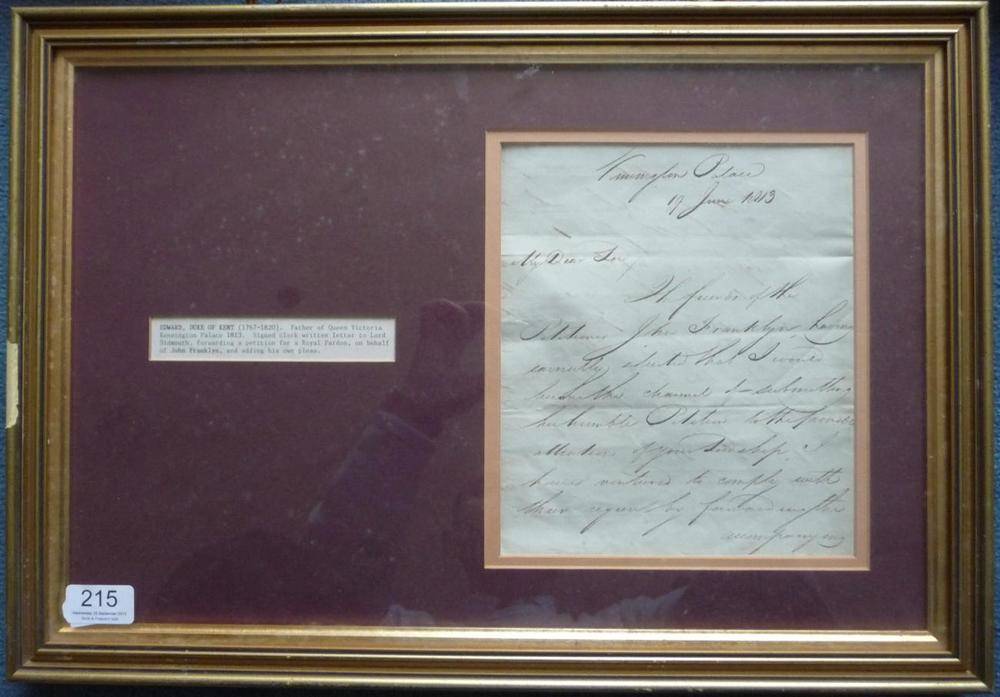 Kensington Palace
19 June 1813
My Dear Lord,
The friends of the
Petitioner John Franklyn, having
earnestly that I would
be the channel of submitting
his humble Petition to the favorable
attention of your Lordship, I
have ventured to comply with
their request by forwarding the
accompanying
EDWARD, DUKE OF KENT (1767-1820). Father of Queen Victoria
Kensington Palace 1813. Signed clerk written letter to Lord
Sidmouth, forwarding a petition for a Royal Pardon, on behalf
of John Franklyn, and adding his own pleas.
215